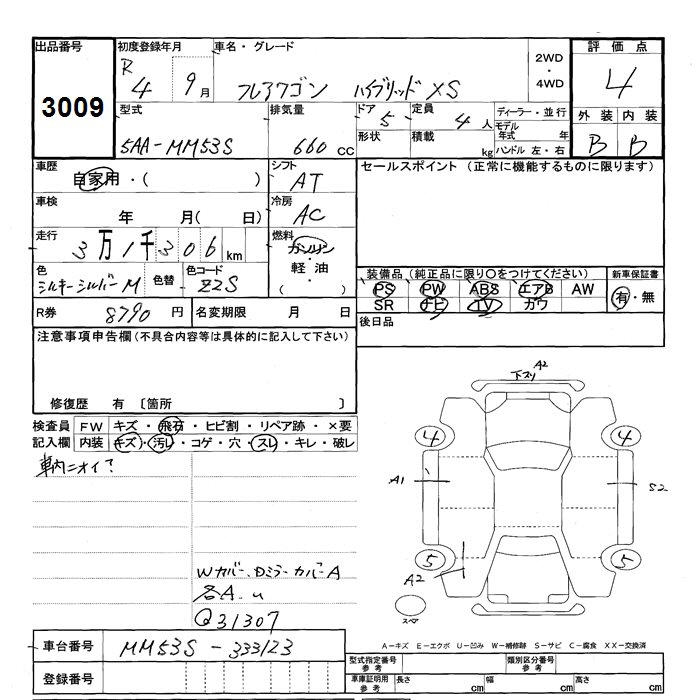 出品番号
3009
初度登録年月
R
4 9月
車名・グレード
フレアワゴン ハイブリッド XS
2WD
・
4WD
評価点
4
外装 内装
B B
型式
5AA-MM53S
排気量
660 cc
ドア
5
定員
4 人
形状
積載
kg
ディーラー・並行
モデル
年式 年
ハンドル 左・右
車歴
自家用・( )
シフト
AT
車検
年 月( 日)
冷房
AC
走行
3万1千306 km
燃料
ガソリン
・
軽油
( )
色
シルキーシルバーM
色替
色コード
ZZS
R券
8790 円
名変期限 月 日
セールスポイント (正常に機能するものに限ります)
装備品 (純正品に限り○をつけてください)
PS PW ABS エアB AW
SR ナビ TV カワ
新車保証書
有・無
後日品
注意事項申告欄(不具合内容等は具体的に記入して下さい)
修復歴 有 〔箇所 〕
検査員
記入欄
FW キズ・飛石・ヒビ割・リペア跡・×要
内装 キズ・汚れ・コゲ・穴・スレ・キレ・破レ
車内ニオイ?
Wカバー、Dミラーカバー A
各A.u
Q31307
下スリ A2
4 4
A1 S2
5 5
A2
スペア
A-キズ E-エクボ U-凹み W-補修跡 S-サビ C-腐食 XX-交換済
車台番号
MM53S-333123
登録番号
型式指定番号
参考
類別区分番号
参考
車庫証明用
参考
長さ cm 幅 cm 高さ cm